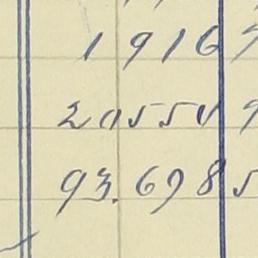 1916
20551 9
93.698 5